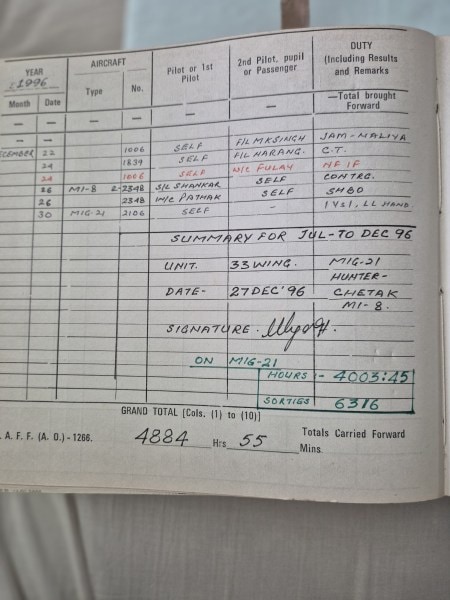 YEAR AIRCRAFT Pilot or 1st Pilot 2nd Pilot, pupil or Passenger DUTY (Including Results and Remarks
1996
Month Date Type No.
— — — — — — —Total brought Forward
DECEMBER 22 1006 SELF F/L MKSINGH JAM-MALIYA
24 1839 SELF F/L NARANG. C.T.
24 1006 SELF W/C FULAY NF IF
26 MI-8 2-2348 S/L SHANKAR SELF CONTRG.
26 2348 W/C PATHAK SELF SH60
30 MIG-21 2106 SELF - 1VS1, LL HAND
SUMMARY FOR JUL-TO DEC 96
UNIT. 33 WING. MIG-21
HUNTER-
DATE- 27DEC'96 CHETAK
MI-8.
SIGNATURE.
ON MIG-21
HOURS :- 4003:45
SORTIES 6316
GRAND TOTAL [Cols. (1) to (10)]
. A. F. F. (A. O.) - 1266. 4884 Hrs 55 Mins. Totals Carried Forward